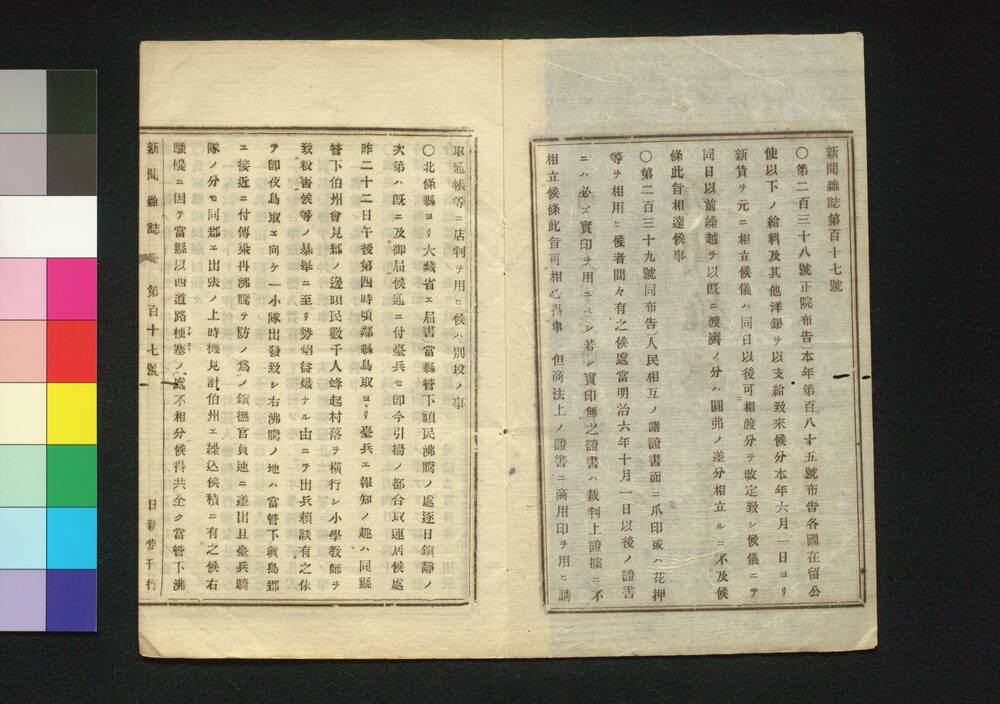 新聞雜誌第百十七號
○第二百三十八號正院布告)本年第百八十五號布告各國在留公
使以下ノ給料及其他洋銀ヲ以支給致來候分本年六月一日ヨリ
新貨ヲ元ニ相立候儀ハ同日以後可相渡分ヲ改定致シ候儀ニテ
同日以前繰越ヲ以既ニ渡濟ノ分ハ圓弗ノ差分相立ルニ不及候
條此旨相達候事
○第二百三十九號同布告)人民相互ノ諸證書面ニ爪印或ハ花押
等ヲ相用ヒ候者間々有之候處當明治六年十月一日以後ノ證書
ニハ必ズ實印ヲ用ユベシ若シ實印無之證書ハ裁判上證據ニ不
相立候條此旨可相心得事 但商法上ノ證書ニ商用印ヲ用ヒ請
取通帳等ニ店判ヲ用ヒ候ハ別段ノ事
○北條縣ヨリ大藏省エ屆書當縣管下頑民沸騰ノ處逐日鎭靜ノ
次第ハ既ニ及御屆候通ニ付臺兵モ卽今引揚ノ都合取運居候處
昨二十二日午後第四時頃鄰縣鳥取ヨリ臺兵エ報知ノ趣ハ同縣
管下伯州會見郡ノ邊頑民數千人蜂起村落ヲ橫行シ小學敎師ヲ
致殺害候等ノ暴擧ニ至リ勢焰益熾ナル由ニテ出兵賴談有之依
テ卽夜鳥取エ向ケ一小隊出發致シ右沸騰ノ地ハ當管下眞島郡
エ接近ニ付傳染再沸騰ヲ防ノ爲メ鎭撫官員速ニ差出且臺兵騎
隊ノ分モ同郡エ出張ノ上時機見計伯州エ繰込候積ニ有之候右
騷擾ニ因テ當縣以西道路梗塞ノ處不相分候得共全ク當管下沸
新聞雜誌 第百十七號 日新堂刊行